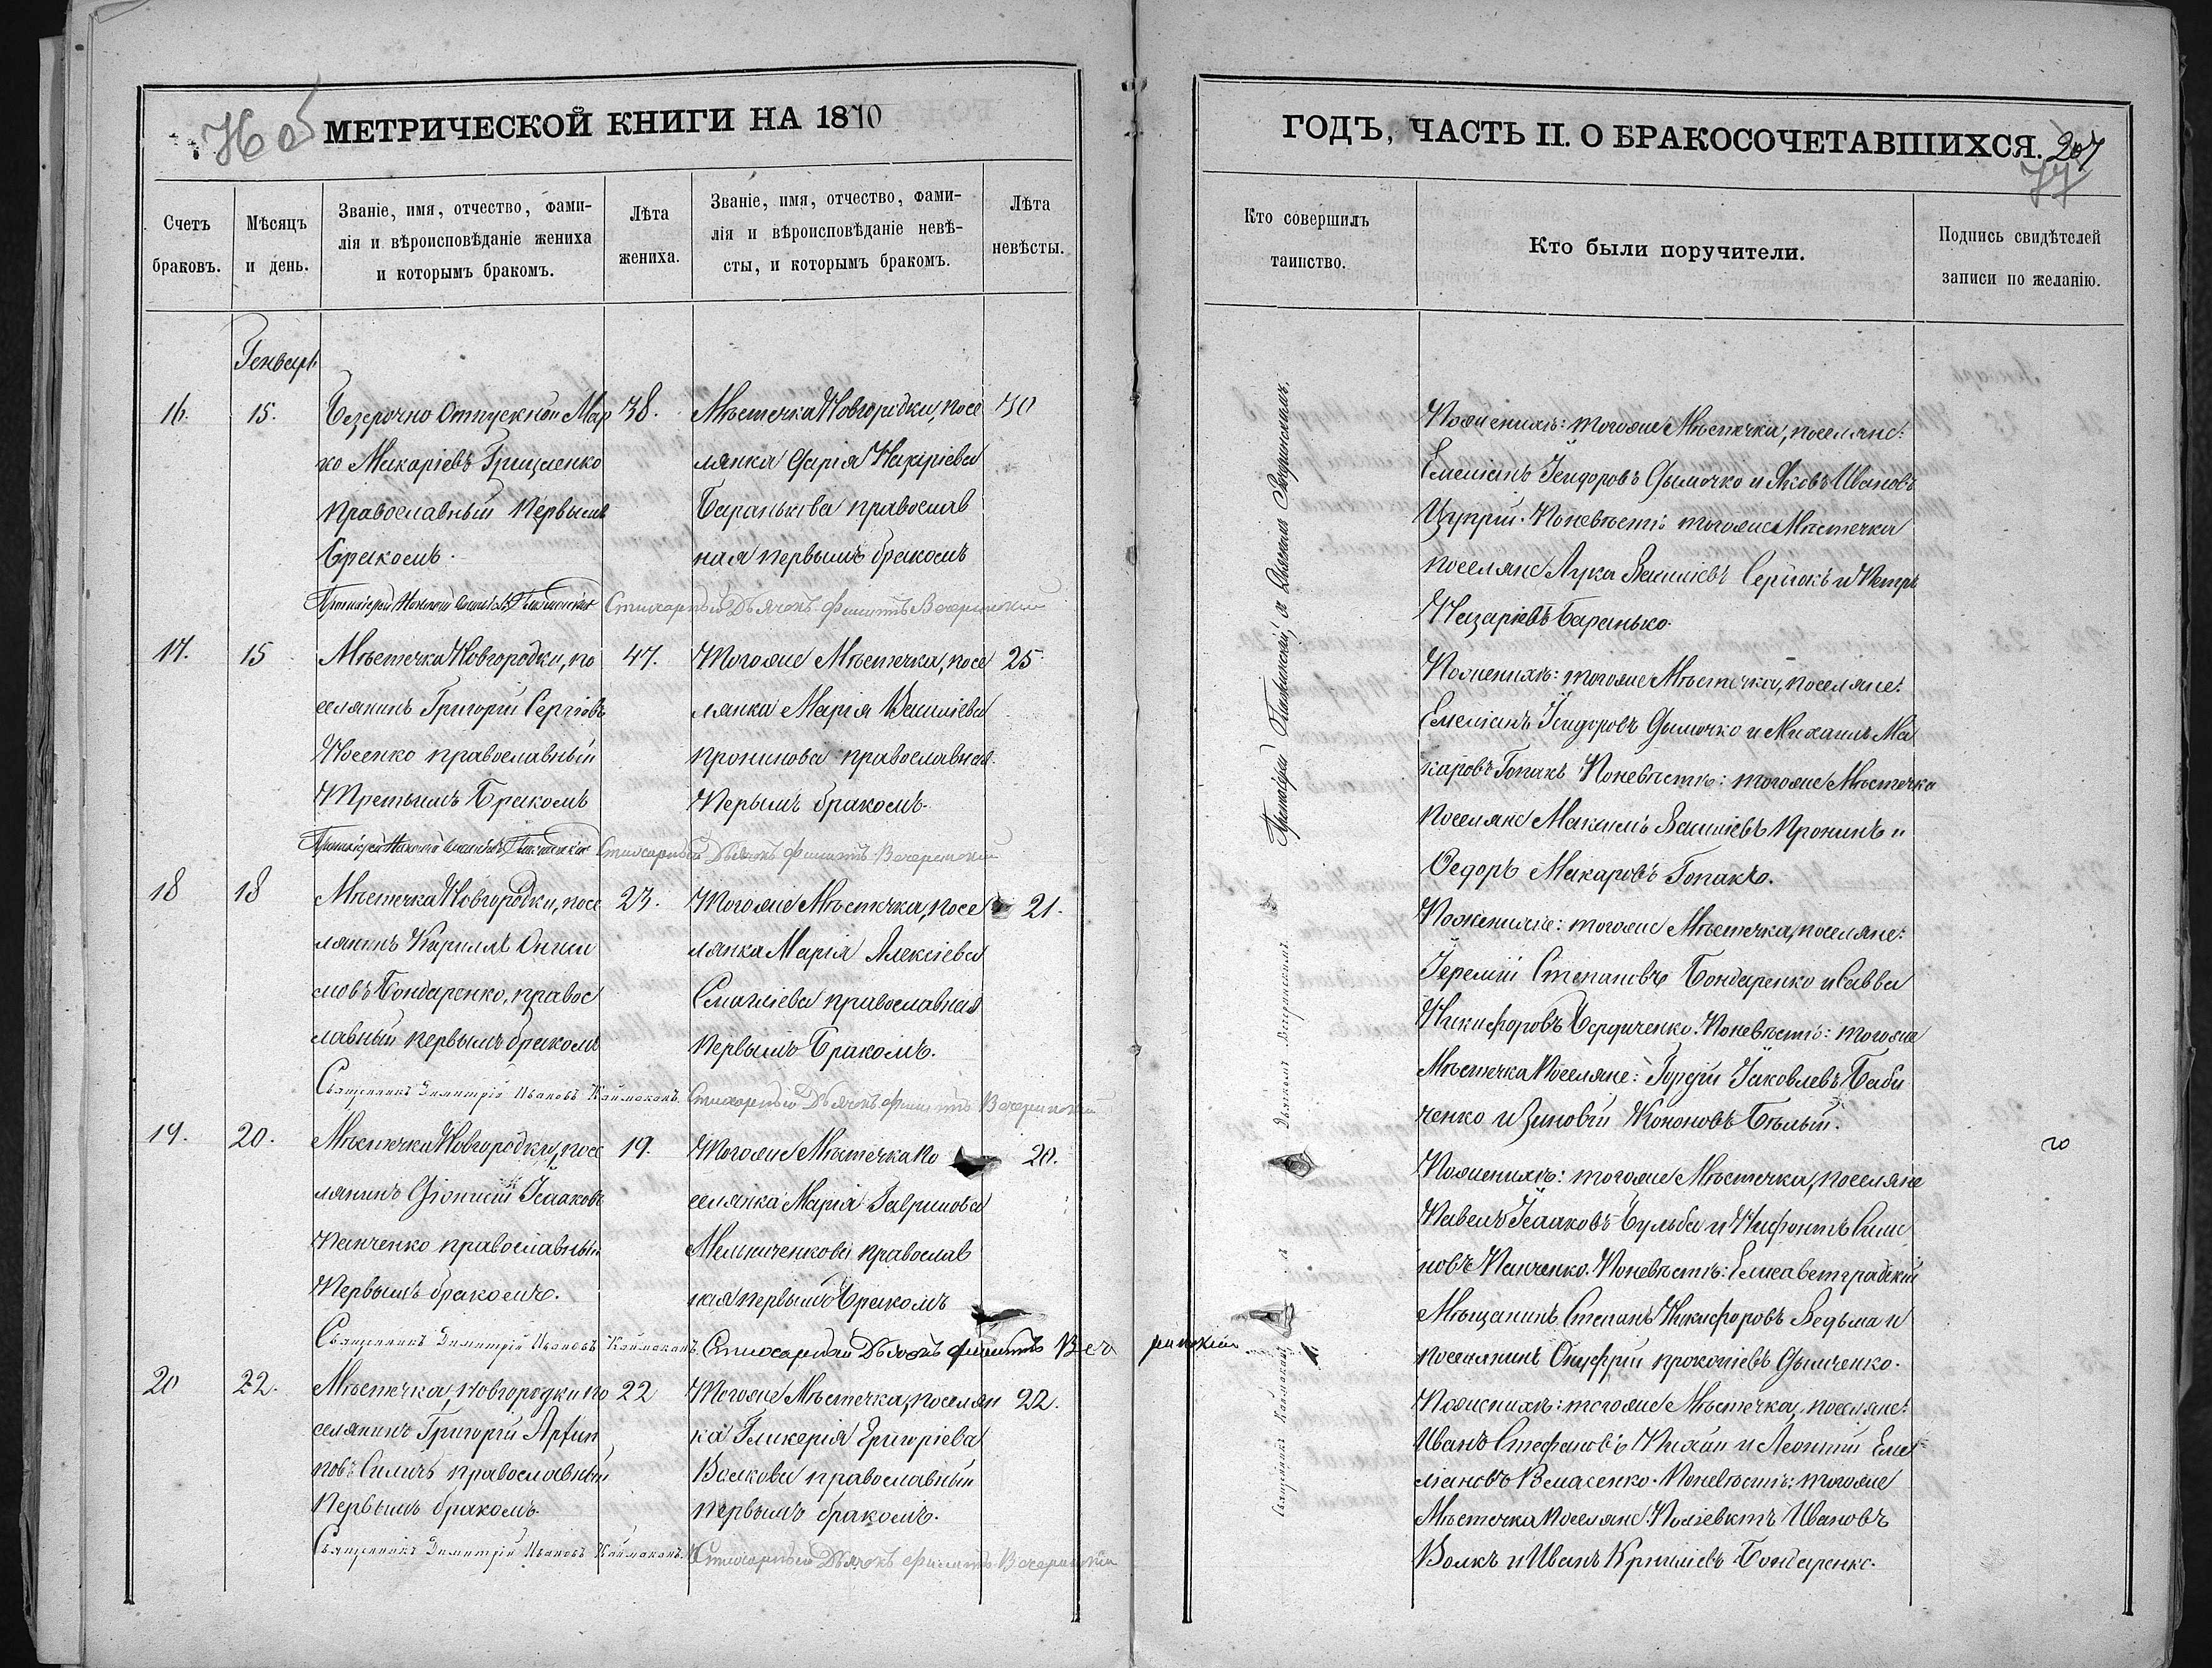 МЕТРИЧЕСКОЙ КНИГИ НА 1870
Счетъ браковъ.
Мѣсяцъ и день.
Званіе, имя, отчество, фами-
лія и вѣроисповѣданіе жениха
и которымъ бракомъ.
Лѣта жениха.
Званіе, имя, отчество, фами-
лія и вѣроисповѣданіе невѣ-
сты, и которымъ бракомъ.
Лѣта невѣсты.
Генварь
16. 15.
Безсрочно Отпускной Мар
ко Макаріевъ Грищенко
православный Первымъ
бракомъ.
38.
Мѣстечка Новгородки, посе
лянка Дарія Назаріева
Баранькова православ
ная первымъ бракомъ
30
Стихарный Дьячокъ Филиппъ Вечеринскій
17. 15
Мѣстечка Новгородки, по
селянинъ Григорій Сергіовъ
Носенко православный
Третьимъ Бракомъ
47.
Тогоже Мѣстечка, посе
лянка Марія Василіева
Пронинова православная
Первымъ бракомъ.
25
Стихарный Дьячокъ Филиппъ Вечеринскій
18 18
Мѣстечка Новгородки, посе
лянинъ КириллъОниси
мовъ Бондаренко, правос
лавный первымъ бракомъ
23.
Тогоже Мѣстечка, посе
лянка Марія Алексіева
православная
Первымъ Бракомъ.
21.
Священникъ Димитрій Ивановъ Каймаканъ. Стихарный Дьячокъ Филиппъ Вечеринскій
19. 20.
Мѣстечка Новгородки, посе
лянинъ Діонисій Ісааковъ
Панченко православный
Первымъ бракомъ.
19.
Тогоже Мѣстечка по
селянка Марія Гаврилова
Мельниченкова православ
ная первымъ Бракомъ
20.
Священникъ Димитрій Ивановъ Каймаканъ. Стихарный Дьячокъ Филиппъ Вечеринскій
20 22.
Мѣстечка Новгородки по
селянинъ Григорій
православный
Первымъ бракомъ.
22
Тогоже Мѣстечка, поселян
ка Гликерія Григоріева
Волкова православный
первымъ бракомъ.
22.
Священникъ Димитрій Ивановъ Каймаканъ. Стихарный Дьячокъ Филиппъ Вечеринскій
ГОДЪ, ЧАСТЬ II. О БРАКОСОЧЕТАВШИХСЯ. 207
77
Кто совершилъ таинство.
Кто были поручители.
Подпись свидѣтелей записи по желанію.
Пожениху: тогоже Мѣстечка, поселяне:
Емеліанъ Ісидоровъ Дымочко и Яковъ Ивановъ
Цупрій. Поневѣстѣ: тогоже Мѣстечка
поселяне Лука Василіевъ Сердюкъ и Петръ
Назаріевъ Баранько.
Пожениху: тогоже Мѣстечка, поселяне:
Емеліанъ Ісидоровъ Дымочко и Михаилъ Ма
каровъ Гопакъ Поневѣстѣ: тогоже Мѣстечка
поселяне Максимъ Василіевъ Пронинъ и
Федоръ Макаровъ Гопакъ.
Пожениху: тогоже Мѣстечка, поселяне:
Іеремій Степановъ Бондаренко и Савва
Никифоровъ Бердиченко. Поневѣстѣ: тогоже
Мѣстечка поселяне: Гордѣй Іаковлевъ Баби
ченко и Зиновій Кононовъ Бѣлый.
Пожениху: тогоже Мѣстечка, поселяне
Павелъ Ісааковъ Бульба и Нифонтъ
новъ Панченко. Поневѣстѣ: Елисаветградскій
Мѣщанинъ Степанъ Никифоровъ Ведьма и
поселянинъ Онуфрій Прокопіевъ Дымченко.
Пожениху: тогоже Мѣстечка, поселяне:
Иванъ Стефановъ и Леонтій Емел
ліановъ Власенко. Поневѣстѣ: тогоже
Мѣстечка поселяне Поліевктъ Ивановъ
Волкъ и Иванъ Бондаренко.